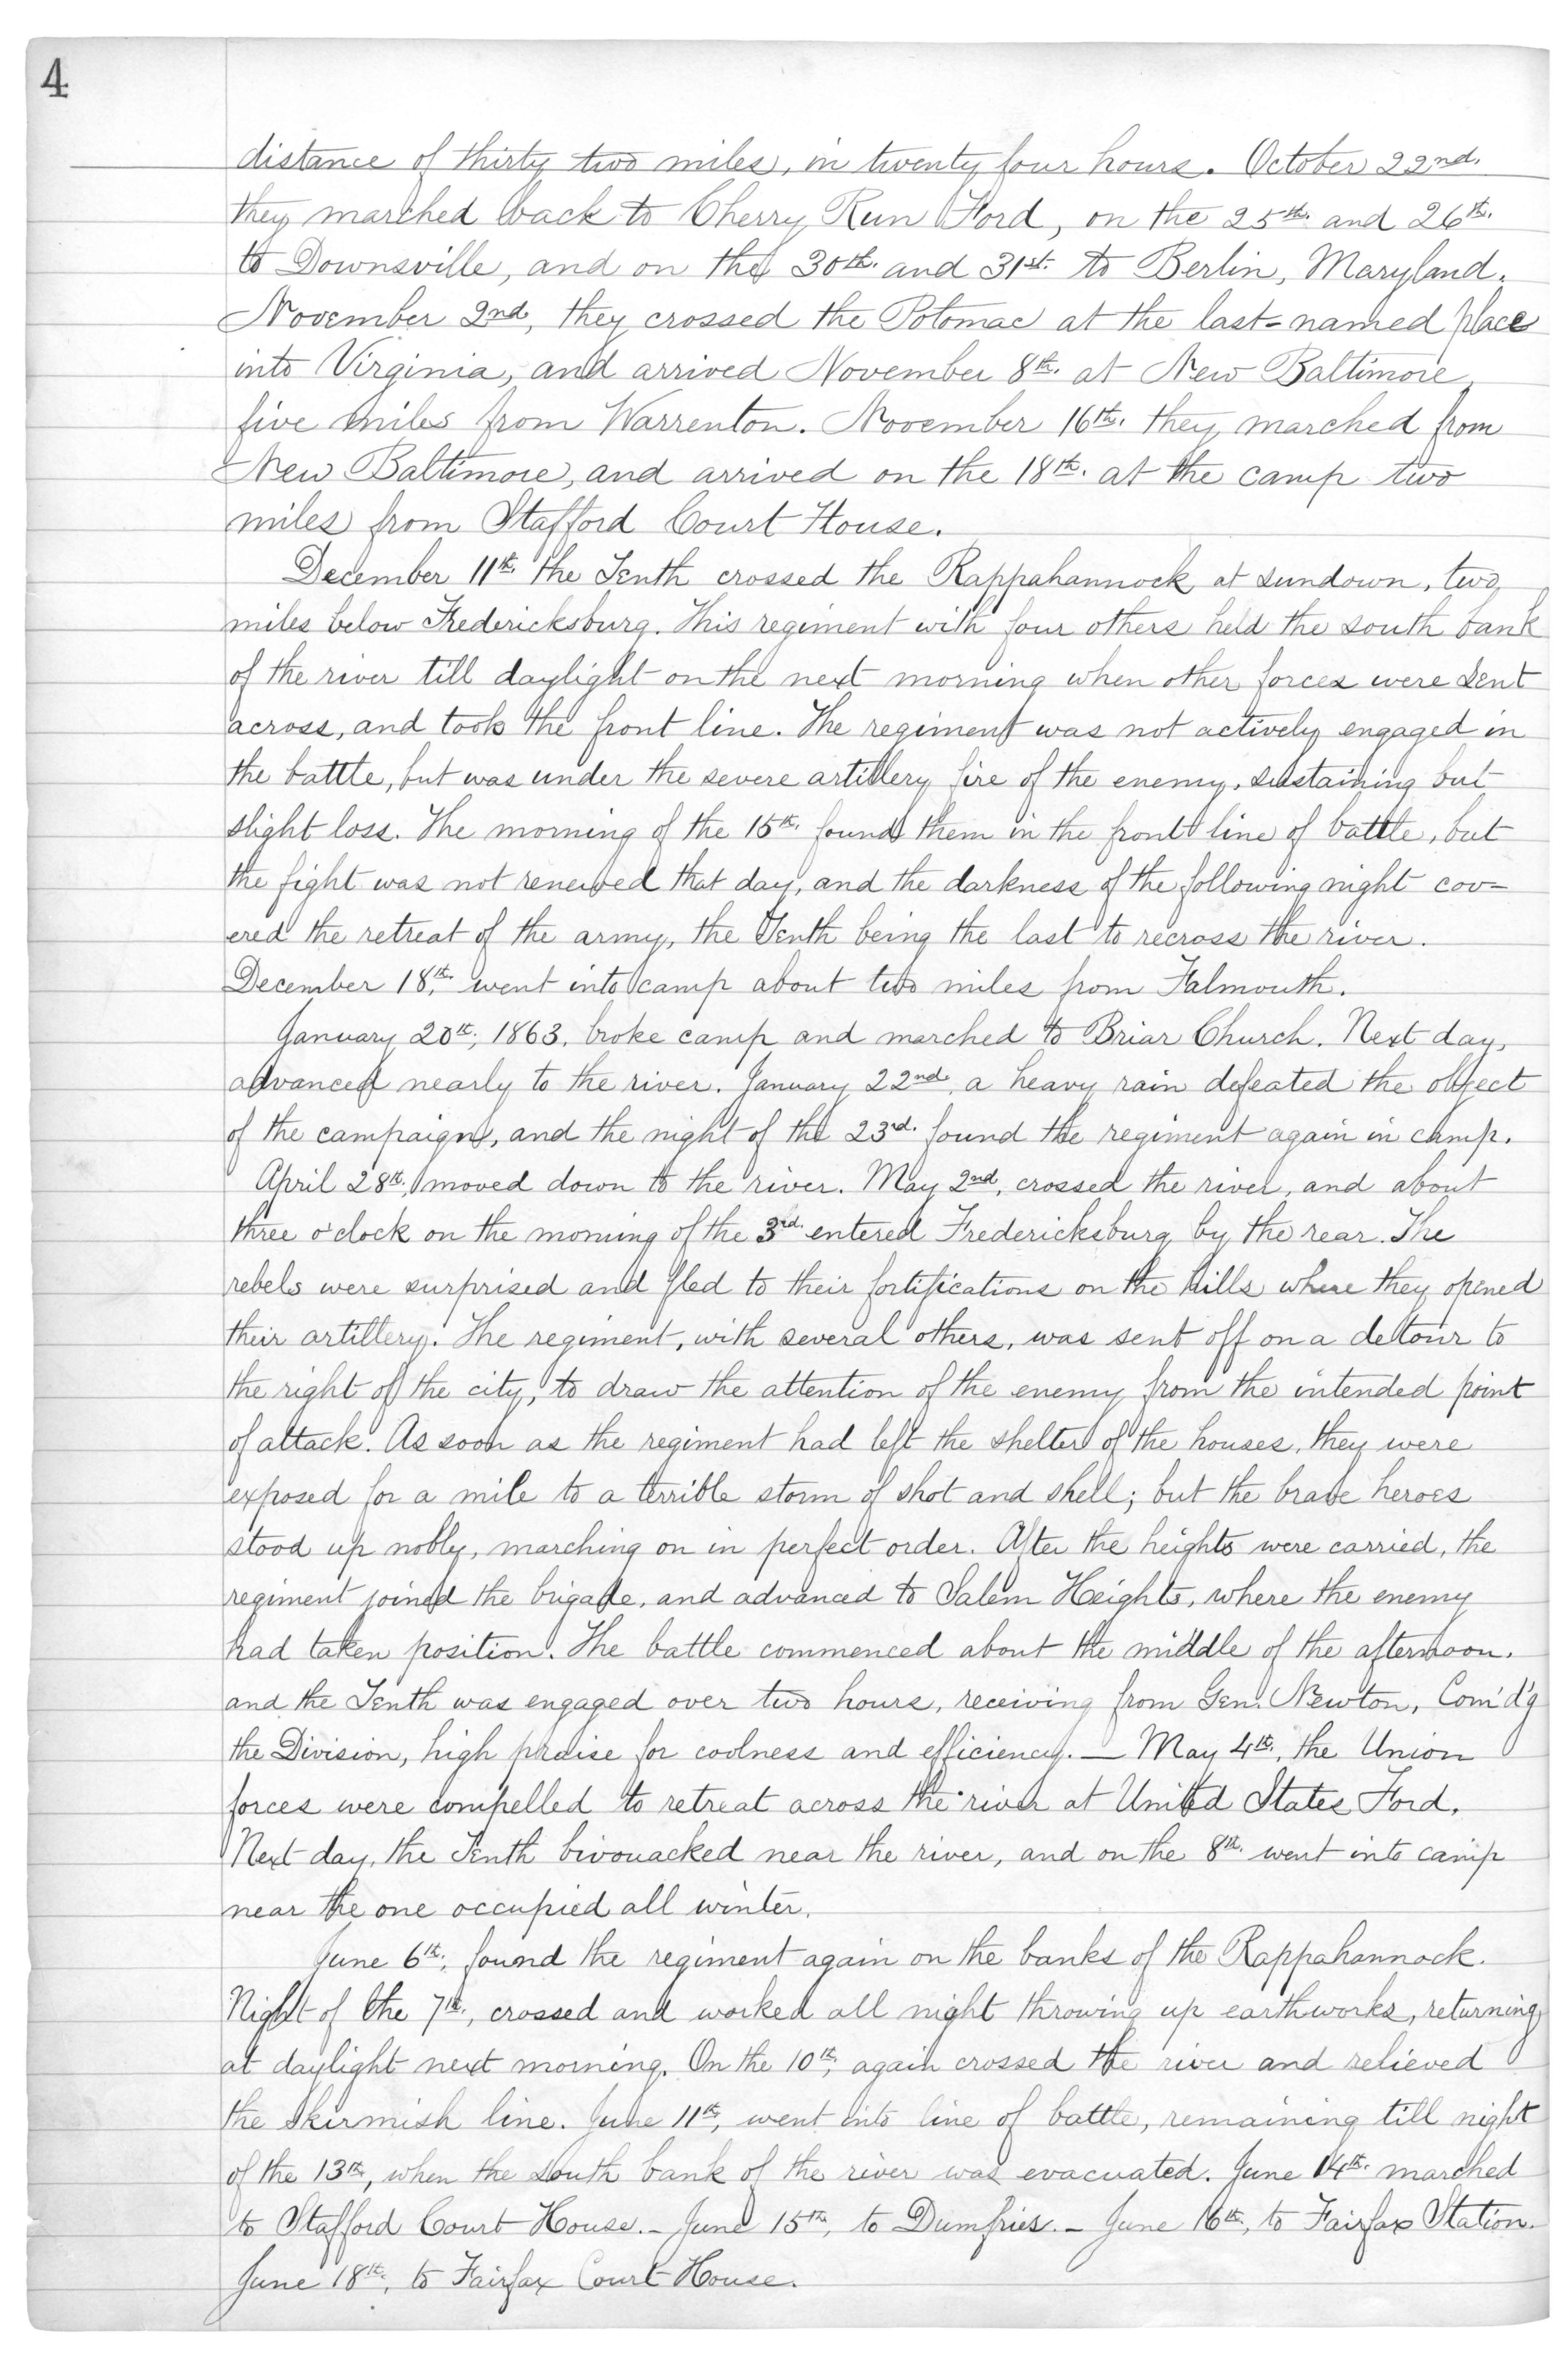 4
distance of thirty two miles, in twenty four hours. October 22nd.
they marched back to Cherry Run Ford, on the 25th. and 26th.
to Downsville, and on the 30th. and 31st. to Berlin, Maryland.
November 2nd, they crossed the Potomac at the last-named place
into Virginia, and arrived November 8th. at New Baltimore,
five miles from Warrenton. November 16th. they marched from
New Baltimore, and arrived on the 18th. at the camp two
miles from Stafford Court House.
December 11th. the Tenth crossed the Rappahannock at sundown, two
miles below Fredericksburg. This regiment with four others held the south bank
of the river till daylight on the next morning when other forces were sent
across, and took the front line. The regiment was not actively engaged in
the battle, but was under the severe artillery fire of the enemy, sustaining but
slight loss. The morning of the 15th. found them in the front line of battle, but
the fight was not renewed that day, and the darkness of the following night cov-
ered the retreat of the army, the Tenth being the last to recross the river.
December 18th. went into camp about two miles from Falmouth.
January 20th, 1863, broke camp and marched to Briar Church. Next day,
advanced nearly to the river. January 22nd, a heavy rain defeated the object
of the campaign, and the night of the 23rd. found the regiment again in camp.
April 28th, moved down to the river. May 2nd, crossed the river, and about
three o'clock on the morning of the 3rd. entered Fredericksburg by the rear. The
rebels were surprised and fled to their fortifications on the hills where they opened
their artillery. The regiment, with several others, was sent off on a detour to
the right of the city, to draw the attention of the enemy from the intended point
of attack. As soon as the regiment had left the shelter of the houses, they were
exposed for a mile to a terrible storm of shot and shell; but the brave heroes
stood up nobly, marching on in perfect order. After the heights were carried, the
regiment joined the brigade, and advanced to Salem Heights, where the enemy
had taken position. The battle commenced about the middle of the afternoon,
and the Tenth was engaged over two hours, receiving from Gen. Newton, Com'd'g
the Division, high praise for coolness and efficiency. — May 4th, the Union
forces were compelled to retreat across the river at United States Ford.
Next day, the Tenth bivouacked near the river, and on the 8th. went into camp
near the one occupied all winter.
June 6th, found the regiment again on the banks of the Rappahannock.
Night of the 7th, crossed and worked all night throwing up earthworks, returning
at daylight next morning. On the 10th, again crossed the river and relieved
the skirmish line. June 11th, went into line of battle, remaining till night
of the 13th, when the south bank of the river was evacuated. June 14th. marched
to Stafford Court House. – June 15th, to Dumfries. – June 16th, to Fairfax Station.
June 18th, to Fairfax Court House.